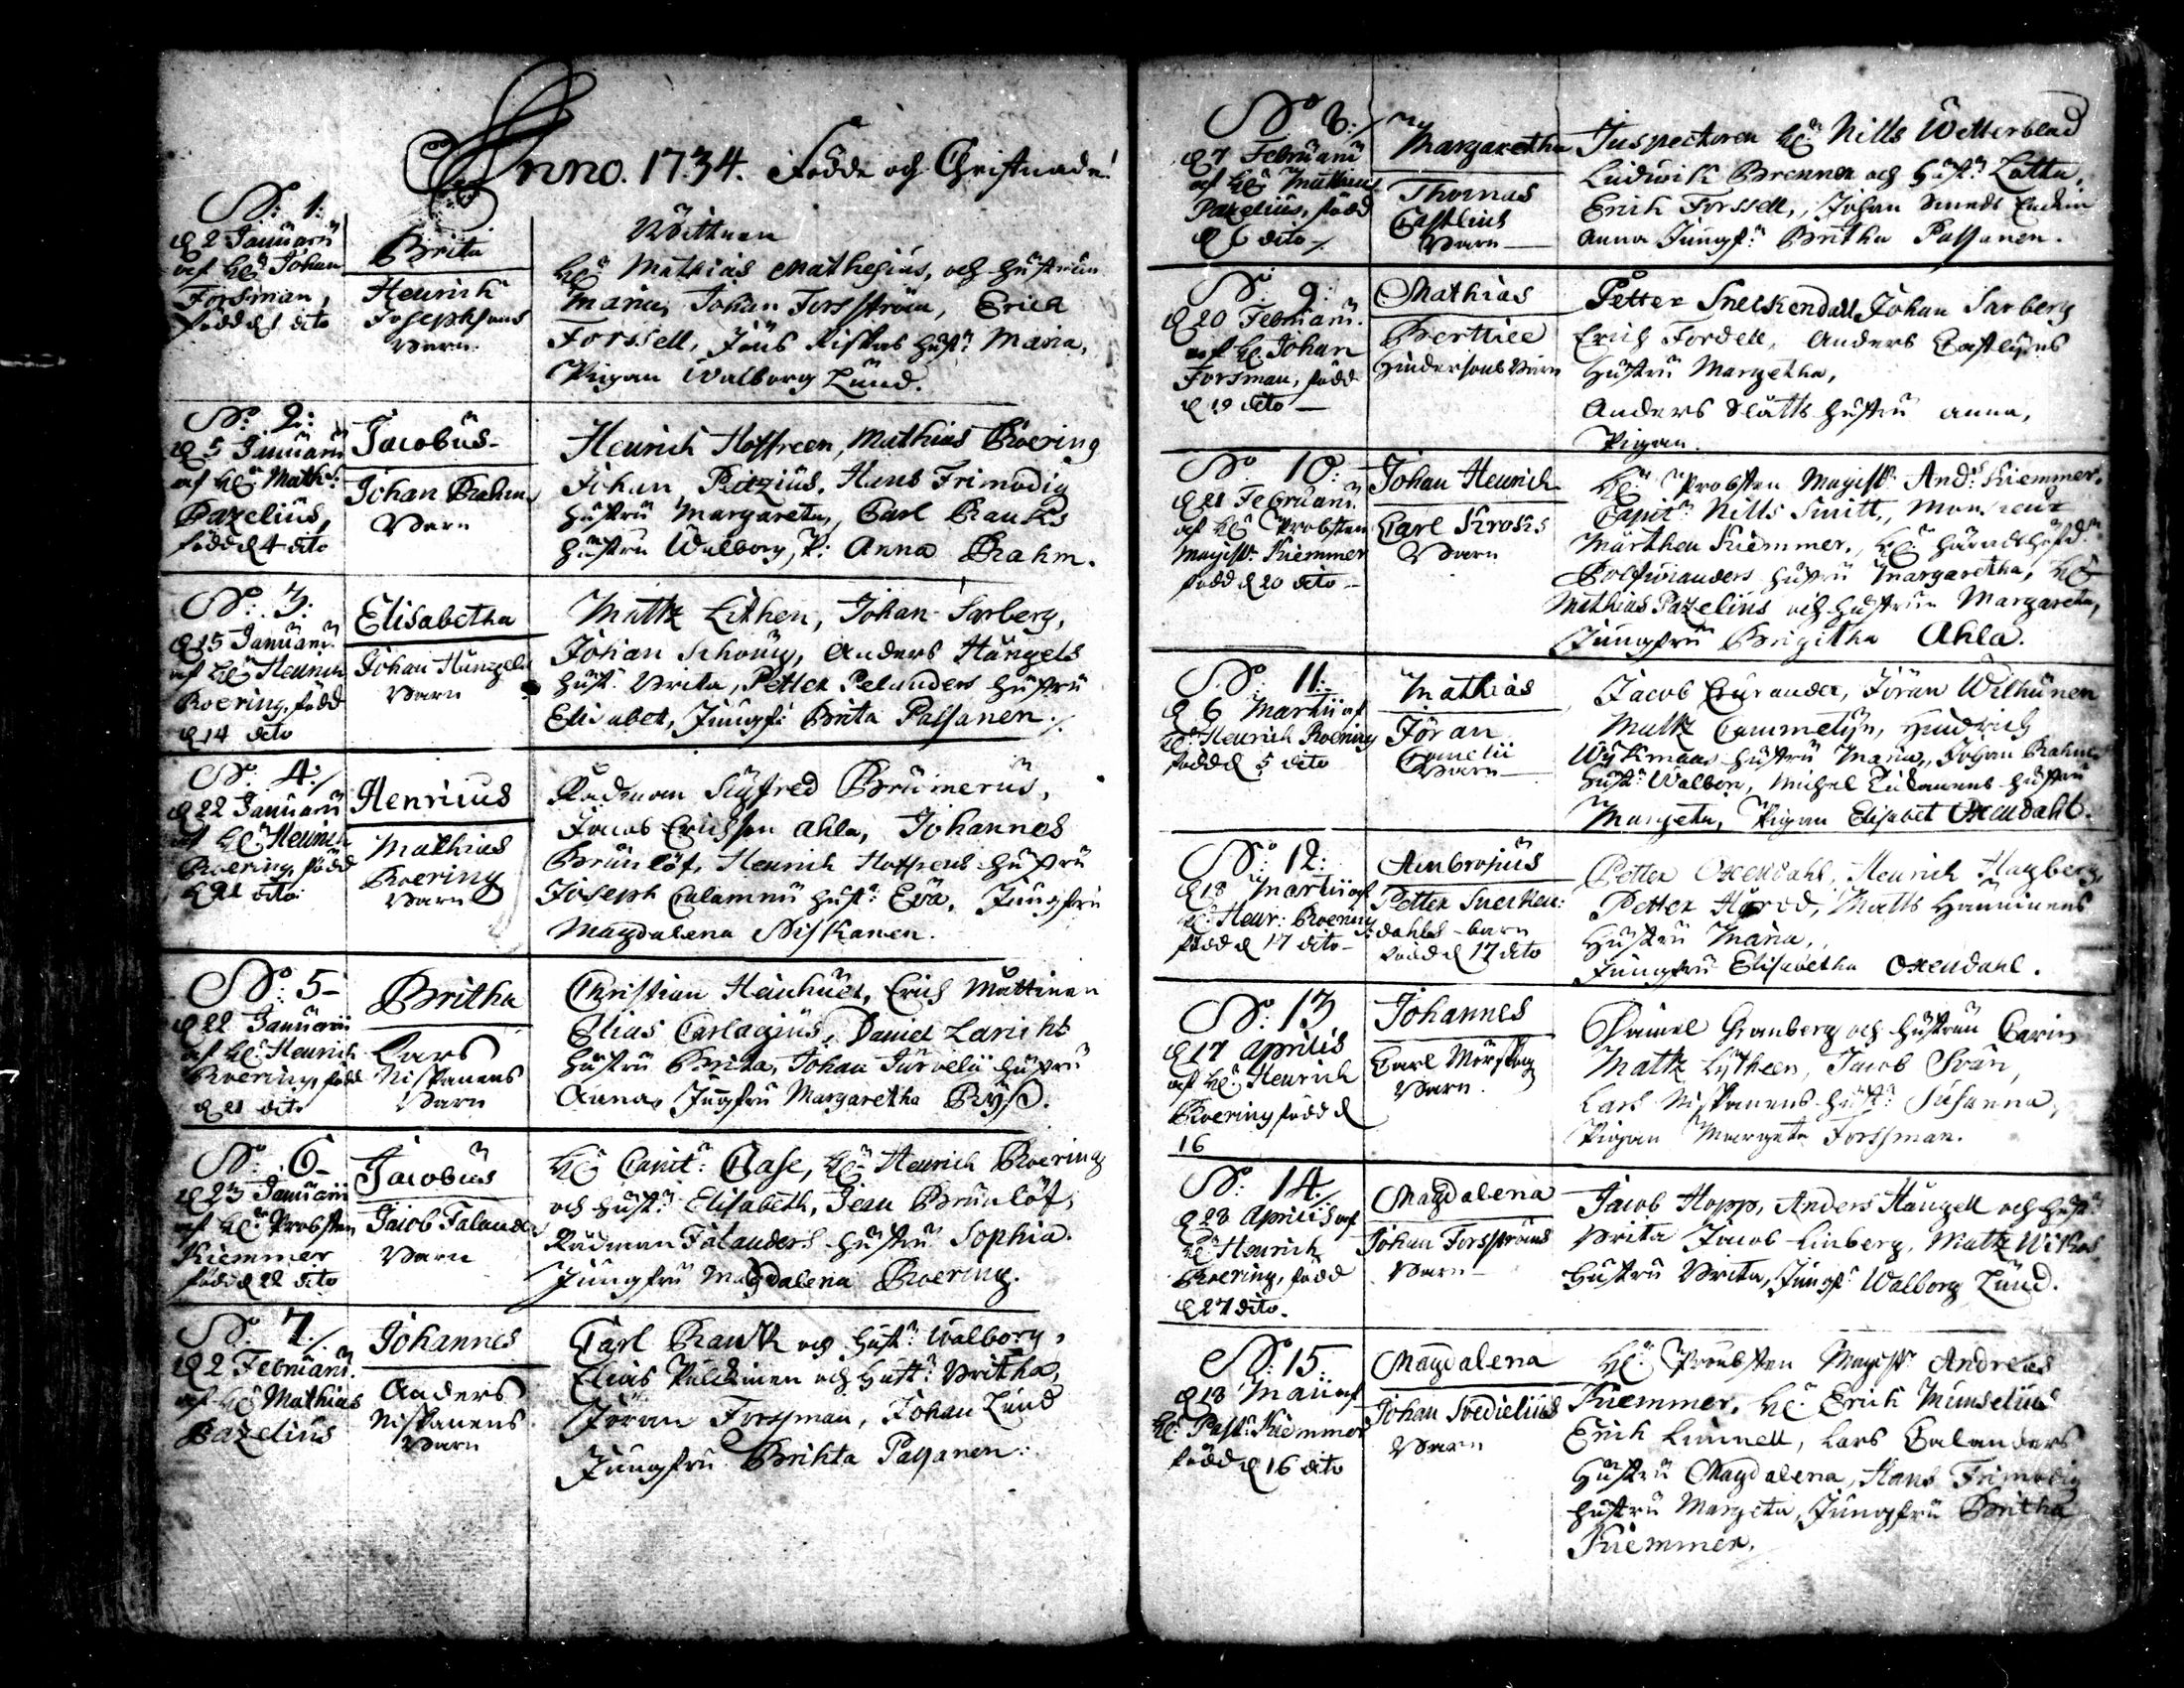 Anno. 1734. Födde och Christnade!
No: 1:
d 2 Januarii
af hr Johan
Forsman,
född d 1 dito
Brita
Henrich
Josephsons
Barn
Wittnen
hr Mathias Mathesius, och hustrun
Maria, Johan Forsström, Erich
Forssell, Jöns hust: Maria,
Pigan Walborg Lund.
No. 2:
d 5 Januarii
af hr Math:
Pazelius,
född d 4 dito
Jacobus
Johan Brahms
Barn
Henrich Hoffreen, Mathias Roering
Johan Pitzius, Hans Frimodig
hustru Margareta, Carl Rauks
hustru Walborg, P: Anna Brahm.
No: 3:
d 15 Januarii
af hr Henrich
Roering, född
d 14 dito
Elisabetha
Johan Hangels
Barn
Mattz Lithen, Johan Sarberg,
Johan Schoug, Anders Hangels
hust: Brita, Petter Pelanders hustru
Elisabet, Jungf: Brita Passanen.
No: 4:
d 22 Januarii
af hr Henrich
Roering, född
d 21 dito
Henricus
Mathias
Roering
Barn
Rådman Sigfred Brumerus,
Jacob Erichsson Ahla, Johannes
Brunlöf, Henrich Hoffreens hustru
Joseph Calamnii hust: Eva, Jungfru
Magdalena Niskanen.
No: 5
d 22 Januarii
af hr Henrich
Roering, född
d 21 dito
Britha
Lars
Niskanens
Barn
Christian Heinhuer, Erich Mattinen
Elias Carlagius, Daniel Larichs
hustru Brita, Johan Jurvelii hustru
Anna, Jungfru Margaretha Rysz.
No: 6
d 23 Januarii
af hr Probsten
Kiemmer
född d 22 dito
Jacobus
Jacob Falanders
Barn
hr Capit: Clase, hr Henrich Roering
och hust: Elisabeth, Jean Brunlöf,
Rådman Falanders hustru Sophia.
Jungfru Magdalena Roering.
No: 7:
d 2 Februarii
af hr Mathias
Pazelius
Johannes
Anders
Niskanens
Barn
Carl Rauk och hust: Walborg,
Elias Pulckinen och hust: Britha,
Jöran Forssman, Johan Lund
Jungfru Brihta Passanen.
No 8:
d 7 Februarii
af hr Mathias
Pazelius, född
d 6 dito
Margaretha
Thomas
Castlius
Barn
Inspectoren hr Nills Wetterblad
Ludwik Brenner och hust: Lotta,
Erich Forssell, Johan
Anna Jungf: Britha Passanen.
No: 9:
d 20 Februarii.
af hr Johan
Forsman, född
d 19 dito
Mathias
Berttiee
Hindersons Barn
Petter Sneckendall Johan Sarberg
Erich Fordell, Anders Castlyns
hustru Margetha,
Anders Slätts hustru Anna,
Pigan.
No 10:
d 21 Februarii
af hr Probsten
Magist: Kiemmer
född d 20 dito
Johan Henrich
Carl Kroks
Barn
hr Probsten Magist: And: Kiemmer,
Capit: Nills Smitt, Monsieur
Märthen Kiemmer, hr häradshöfd:
hustru Margaretha, hr
Mathias Pazelius och hustrun Margareta,
Jungfru Brigitha Ahla.
No: 11:
d 6 Martii af
hr Henrich Roering
född d 5 dito
Mathias
Jöran
Cornelii
Barn
Jacob Eurander, Jöran Wilhunen
Mattz Cammelijn, Hindrich
Wijkmans hustru Maria, Johan Brahms
hust: Walbor, Michel Tickanens hustru
Margeta, Pigan Elisabet Oxendahl.
No: 12:
d 18 Martii af
hr Henr: Roering
född d 17 dito
Ambrosius
Petter Snecken:
dahls barn
född d 17 dito
Petter Oxendahl, Henrich Hagberg,
Petter Hårod, Matts Hänninens
hustru Maria,
Jungfru Elisabetha Oxendahl.
No: 13
d 17 Aprilis
af hr Henrich
Roering född d
16
Johannes
Carl Mörsky
Barn
Daniel Granberg och hustrun Carin
Mattz Lytheen, Jacob Svan,
Lars Niskanens hust: Susanna,
Pigan Margeta Forssman.
No: 14.
d 28 Aprilis af
hr Henrich
Roering, född
d 27 dito.
Magdalena
Johan Forsströms
Barn
Jacob Hopp, Anders Hangell och hust:
Brita Jacob Linberg, Mattz Wikas
hustru Brita, Jungf: Walborg Lund.
No: 15:
d 18 Maii af
hr Past: Kiemmer
född d 16 dito
Magdalena
Johan Svedelius
Barn
hr Probsten Magist: Andreas
Kiemmer, hr Erich Munselius
Erich Linnell, Lars Calanders
hustru Magdalena, Hans Frimodig
hustru Margeta, Jungfru Britha
Kiemmer.